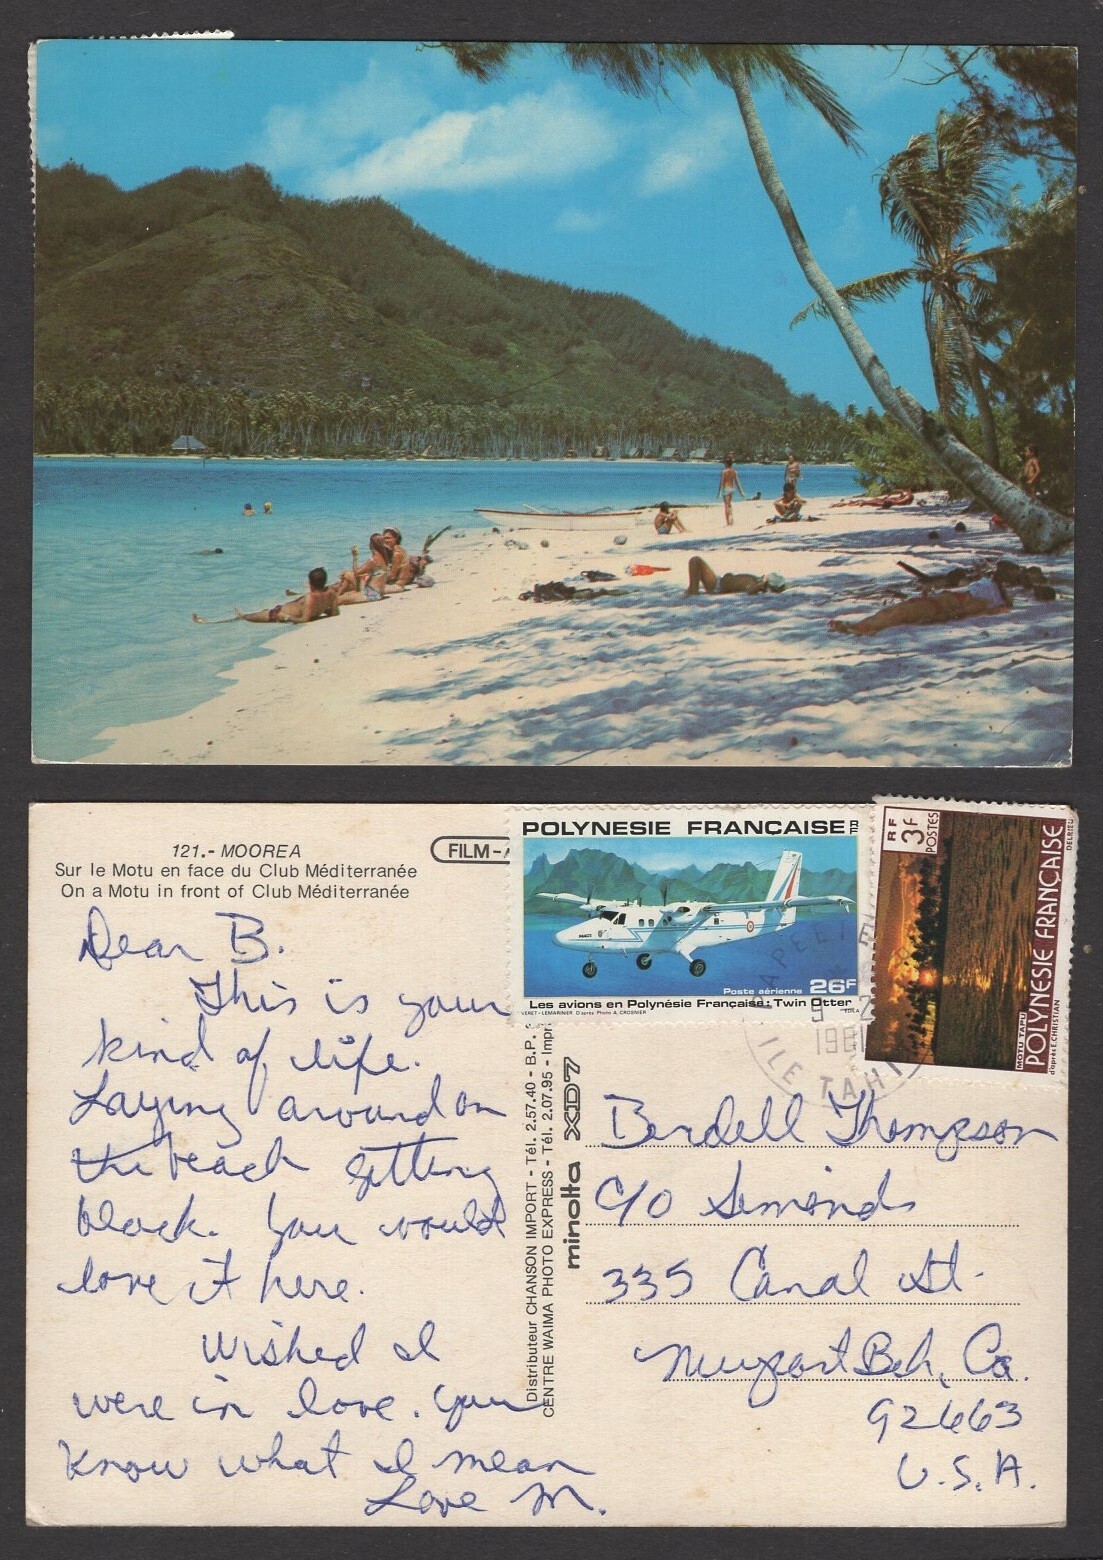 121.- MOOREA
Sur le Motu en face du Club Méditerranée
On a Motu in front of Club Méditerranée
FILM-
Dear B.
This is your
kind of life.
Laying around on
the beach getting
black. You would
love it here.
Wished I
were in love. You
know what I mean
Love M.
POLYNESIE FRANÇAISE
Poste aérienne 26F
Les avions en Polynésie Française: Twin Otter
VERET-LEMARINIER D'après Photo A. CROSNIER
RF 3F POSTES
MOTU TAPU
POLYNÉSIE FRANÇAISE
d'après E. CHRISTIAN
DELRIEU
PAPEETE
9 7
1981
ILE TAHITI
Distributeur CHANSON IMPORT - Tél. 2.57.40 - B.P.
CENTRE WAIMA PHOTO EXPRESS - Tél. 2.07.95 - Impr
minolta XD7
Berdell Thompson
c/o Simonds
335 Canal St.
Newport Bch, Ca.
92663
U.S.A.